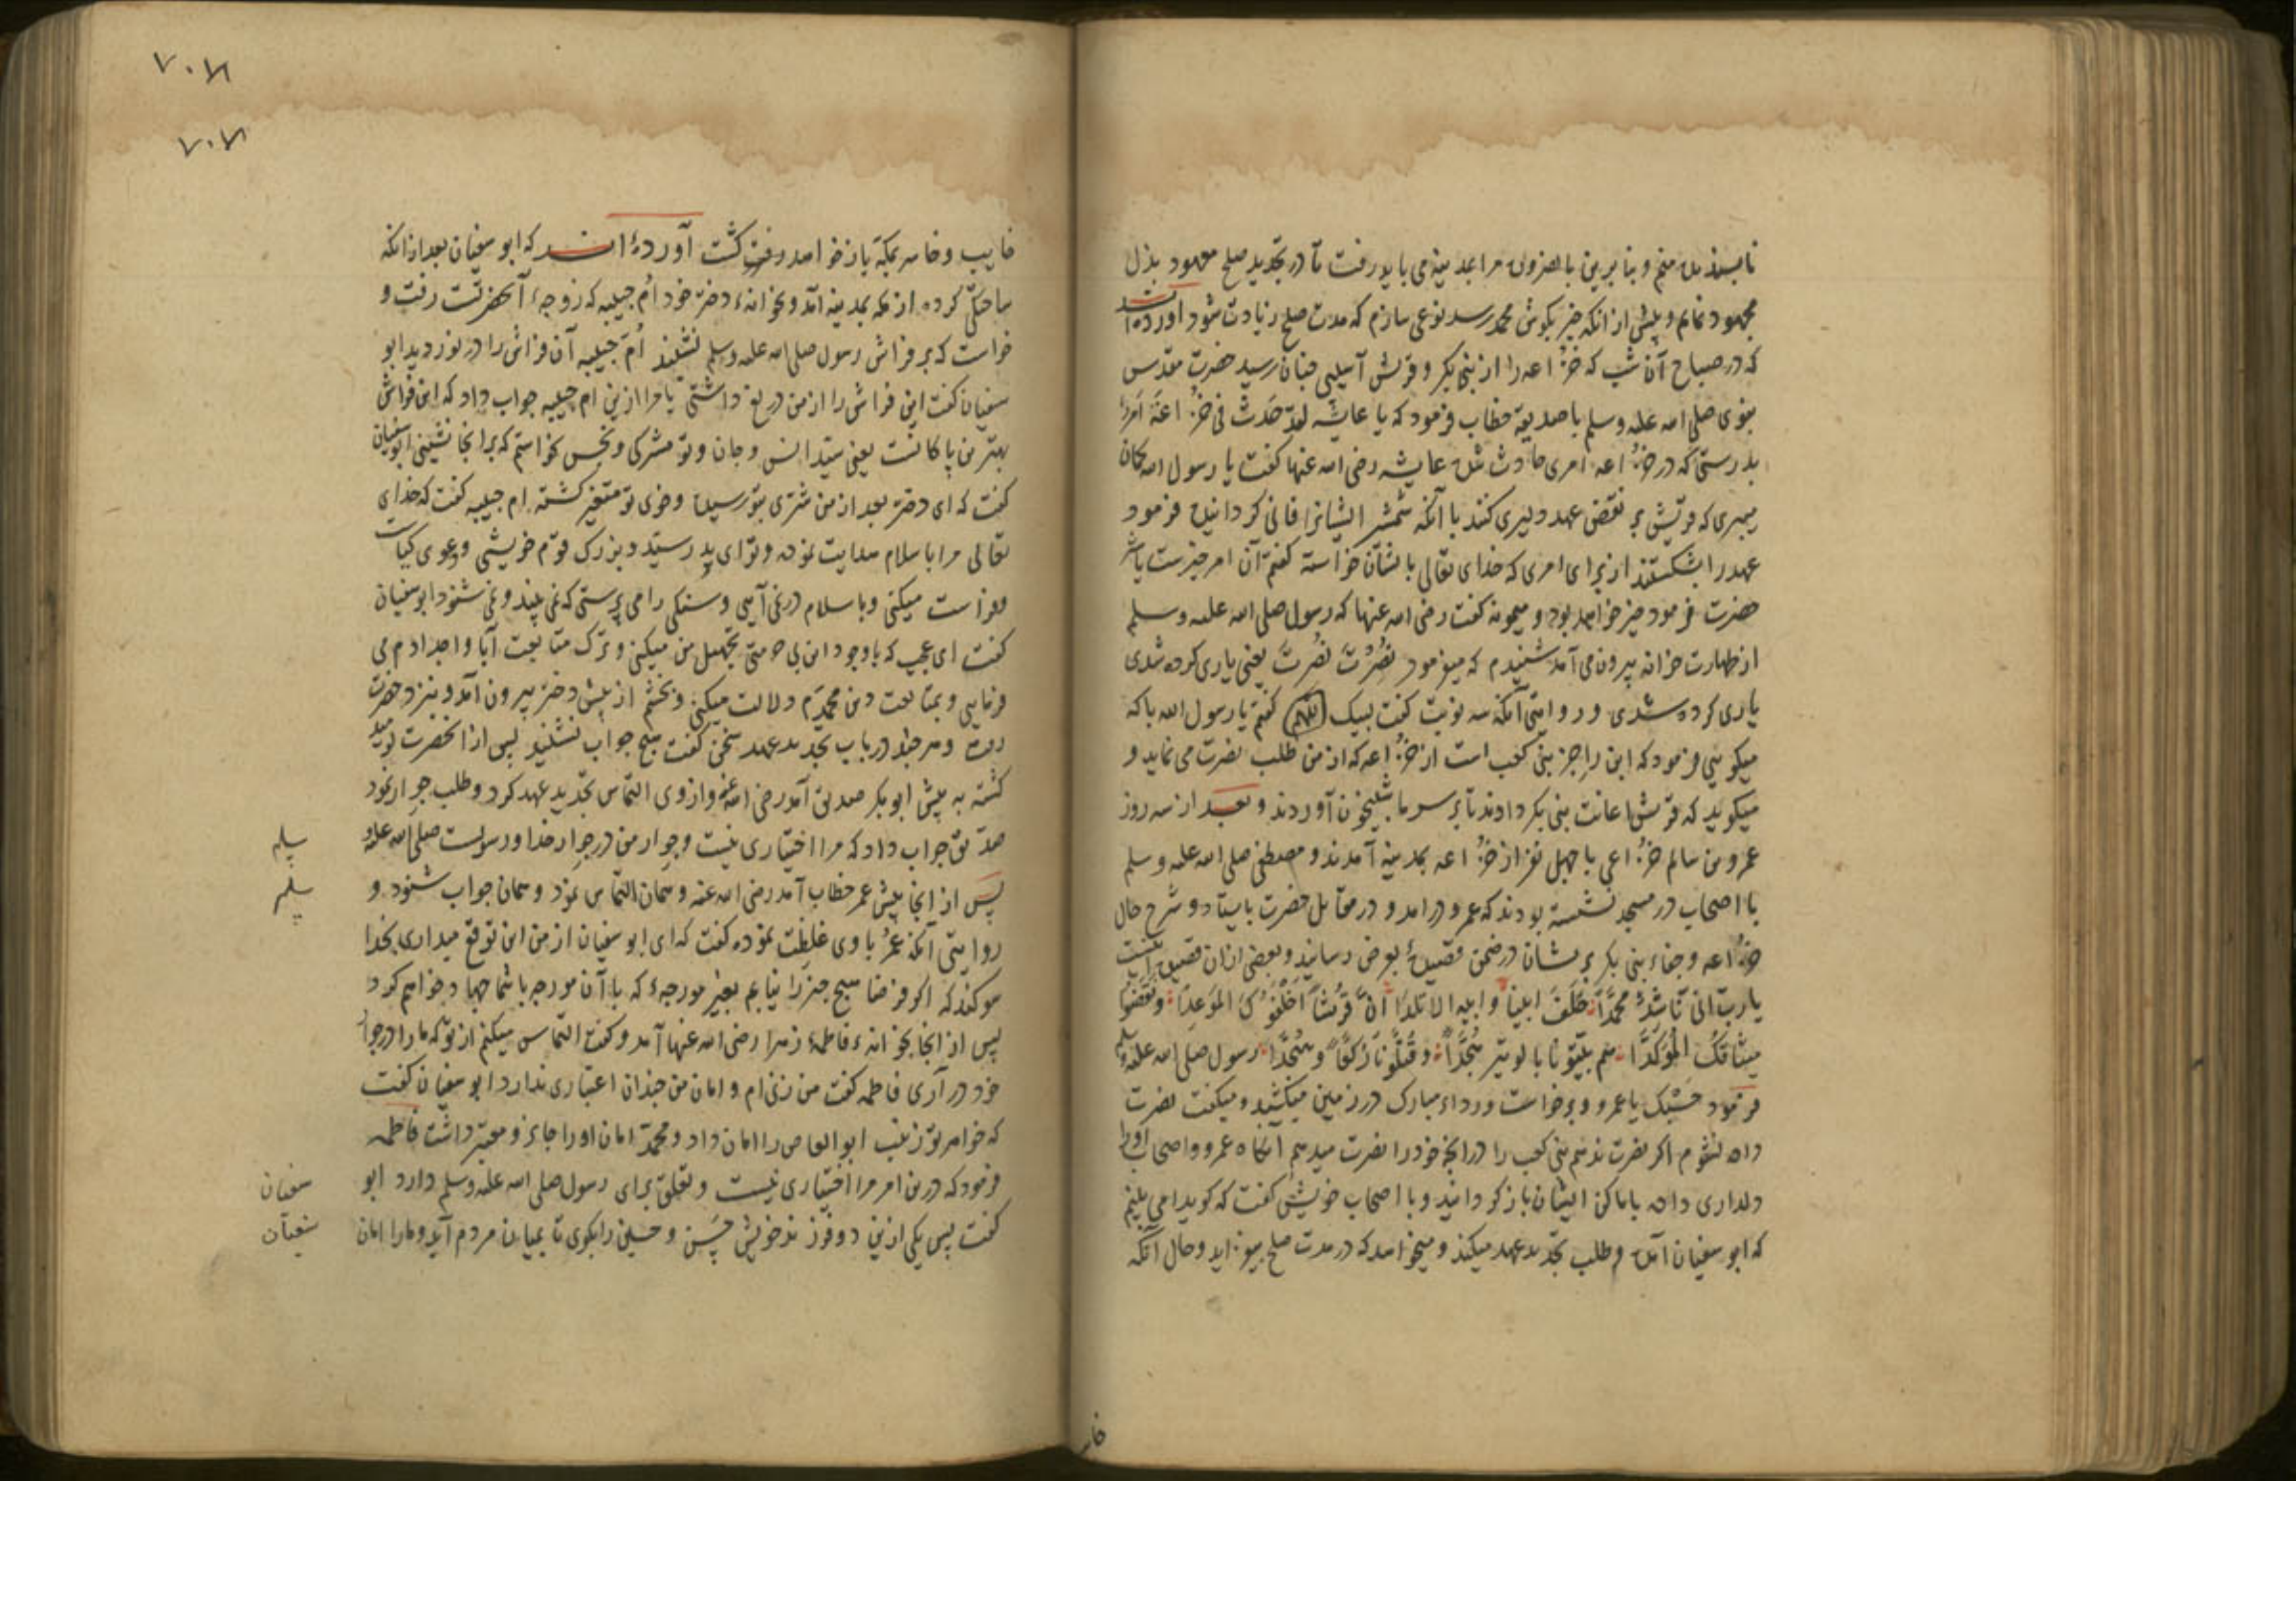 ناپسندیده منم و بنا برین بالضروره مرا بمدینه می باید رفت تا در تجدید صلح معهود بذل
مجهود نمایم و پیش از انکه خبر بکوش محمد رسد نوعی سازم که مدت صلح زیادت شود آورده اند
که در صباح آن شب که خزاعه را از بنی بکر و قریش آسیبی چنان رسید حضرت مقدس
نبوی صلی الله علیه وسلم با صدیقه خطاب فرمود که یا عایشه لقد حدث فی خزاعة امر
بدرستی که در خزاعه امری حادث شد عایشه رضی الله عنها کفت یا رسول الله کمان
میبری که قریش بر نقض عهد دلیری کنند با آنکه شمشیر ایشانرا فانی کردانیده فرمود
عهد را بشکستند از برای امری که خدای تعالی بایشان خواسته کفتم آن امر خیرست یا شر
حضرت فرمود خیر خواهد بود و میمونه کفت رضی الله عنها که رسول صلی الله علیه وسلم
از طهارت خانه بیرون می آمد شنیدم که میفرمود نُصُرْتَ نُصُرْتَ یعنی یاری کرده شدی
یاری کرده شدی و روایتی آنکه سه نوبت کفت لبیک کفتم یا رسول الله با که
میکویی فرمود که این راجز بنی کعب است از خزاعه که از من طلب نصرت می نماید و
میکوید که قریش اعانت بنی بکر دادند تا بر سر ما شبیخون آوردند و بعد از سه روز
عمرو بن سالم خزاعی با چهل نفر از خزاعه بمدینه آمدند و مصطفی صلی الله علیه وسلم
با اصحاب در مسجد نشسته بودند که عمرو درامد و در مقابل حضرت بایستاد و شرح حال
خزاعه و جفاء بنی بکر بریشان در ضمن قصیدهٔ بعرض رسانید و بعضی ازان قصیده اینست
یارب انی ناشد محمدا حلف ابینا و ابیه الاتلدا ان قریشا اخلفوک الموعدا ونقضوا
میثاقک المؤکدا هم بیتونا بالوتیر هجدا وقتلونا رکعا وسجدا رسول صلی الله علیه وسلم
فرمود حسبک یا عمرو و برخاست و رداء مبارک در زمین میکشید و میکفت نصرت
داده نشوم اکر نصرت ندهم بنی کعب را درانچه خود را نصرت میدهم آنکاه عمرو و اصحاب او را
دلداری داده باماکن ایشان بازکردانید و با اصحاب خویش کفت که کویا می بینم
که ابو سفیان آمده و طلب تجدید عهد میکند و میخواهد که در مدت صلح بیفزاید وحال آنکه
خا
۷۰۷
۷۰۷
خایب و خاسر بمکه باز خواهد رفت کشت آورده اند که ابو سفیان بعد از انکه
کرده از مکه بمدینه آمد و بخانهٔ دختر خود ام حبیبه که زوجهٔ آنحضرتست رفت و
خواست که بر فراش رسول صلی الله علیه وسلم نشیند ام حبیبه آن فراش را در نوردید ابو
سفیان کفت این فراش را از من دریغ داشتی یا مرا ازین ام حبیبه جواب داد که این فراش
بهترین پاکانست یعنی سید انس و جان و تو مشرکی و نجس نخواستم که بر انجا نشینی ابو سفیان
کفت که ای دختر بعد از من شری بتو رسیده و خوی تو متغیر کشته ام حبیبه کفت که خدای
تعالی مرا باسلام هدایت نمود و تو ای پدر سید و بزرک قوم خویشی و دعوی کیاست
و فراست میکنی و باسلام در نمی آیی و سنکی را می پرستی که نمی بیند و نمی شنود ابو سفیان
کفت ای عجب که باوجود این بی حرمتی تجهیل من میکنی و ترک متابعت آبا و اجدادم می
فرمایی و بمتابعت دین محمدم دلالت میکنی و بخشم از پیش دختر بیرون آمد و بنزد حضرت
رفت و هر چند در باب تجدید عهد سخن کفت هیچ جواب نشنید پس از انحضرت نومید
کشته به پیش ابو بکر صدیق آمد رضی الله عنه و از وی التماس تجدید عهد کرد و طلب جوار نمود
صدیق جواب داد که مرا اختیاری نیست و جوار من در جوار خدا و رسولست صلی الله علیه و
پس از انجا پیش عمر خطاب آمد رضی الله عنه و همان التماس نمود و همان جواب شنود و
روایتی آنکه عمر با وی غلظت نموده کفت که ای ابو سفیان از من این توقع میداری بخدا
سوکند که اکر فرضا هیچ چیز را نیابم بغیر مورچهٔ که با آن مورچه با شما جهاد خواهم کرد
پس از انجا بخانهٔ فاطمهٔ زهرا رضی الله عنها آمد و کفت التماس میکنم از تو که ما را در جوار
خود در آری فاطمه کفت من زنی ام و امان من چندان اعتباری ندارد ابو سفیان کفت
که خواهر تو زینب ابو العاص را امان داد و محمد امان او را جایز و معتبر داشت فاطمه
فرمود که درین امر مرا اختیاری نیست و تعلق برای رسول صلی الله علیه وسلم دارد ابو
کفت پس یکی ازین دو فرزند خویش حسن و حسین را بکوی تا بمیان مردم آید و ما را امان
سلم
سلم
سفیان
سفیان